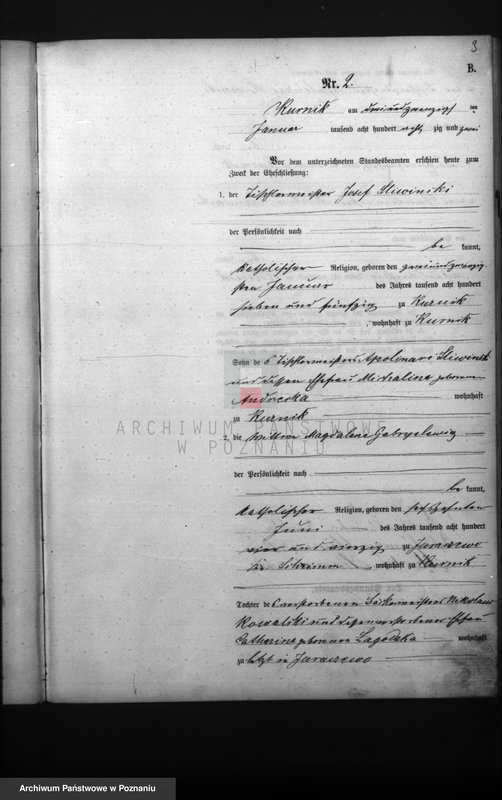 3
B.
Nr. 2.
Kurnik am dreiundzwanzigsten
Januar tausend acht hundert achtzig und zwei
Vor dem unterzeichneten Standesbeamten erschien heute zum
Zweck der Eheschließung:
1. der Tischlermeister Josef Sliwinski
der Persönlichkeit nach
be kannt,
katholischer Religion, geboren den zweiundzwanzig
sten Januar des Jahres tausend acht hundert
sieben und fünfzig zu Kurnik
, wohnhaft zu Kurnik
Sohn des Tischlermeisters Apolinari Sliwinski
und dessen Ehefrau Michalina geborene
wohnhaft
zu Kurnik
2. die Wittwe Magdalene Gabryelewicz
der Persönlichkeit nach
be kannt,
katholischer Religion, geboren den sechszehnten
Juni des Jahres tausend acht hundert
vier und vierzig zu Jaraczewo
Kr. Schrimm, wohnhaft zu Kurnik
Tochter des verstorbenen Nikolaus
Kowalski und dessen verstorbener Ehefrau
Catharina geborene Lagodzka wohnhaft
zu letzt in Jaraczewo
ARCHIWUM PAŃSTWOWE
W POZNANIU
Archiwum Państwowe w Poznaniu